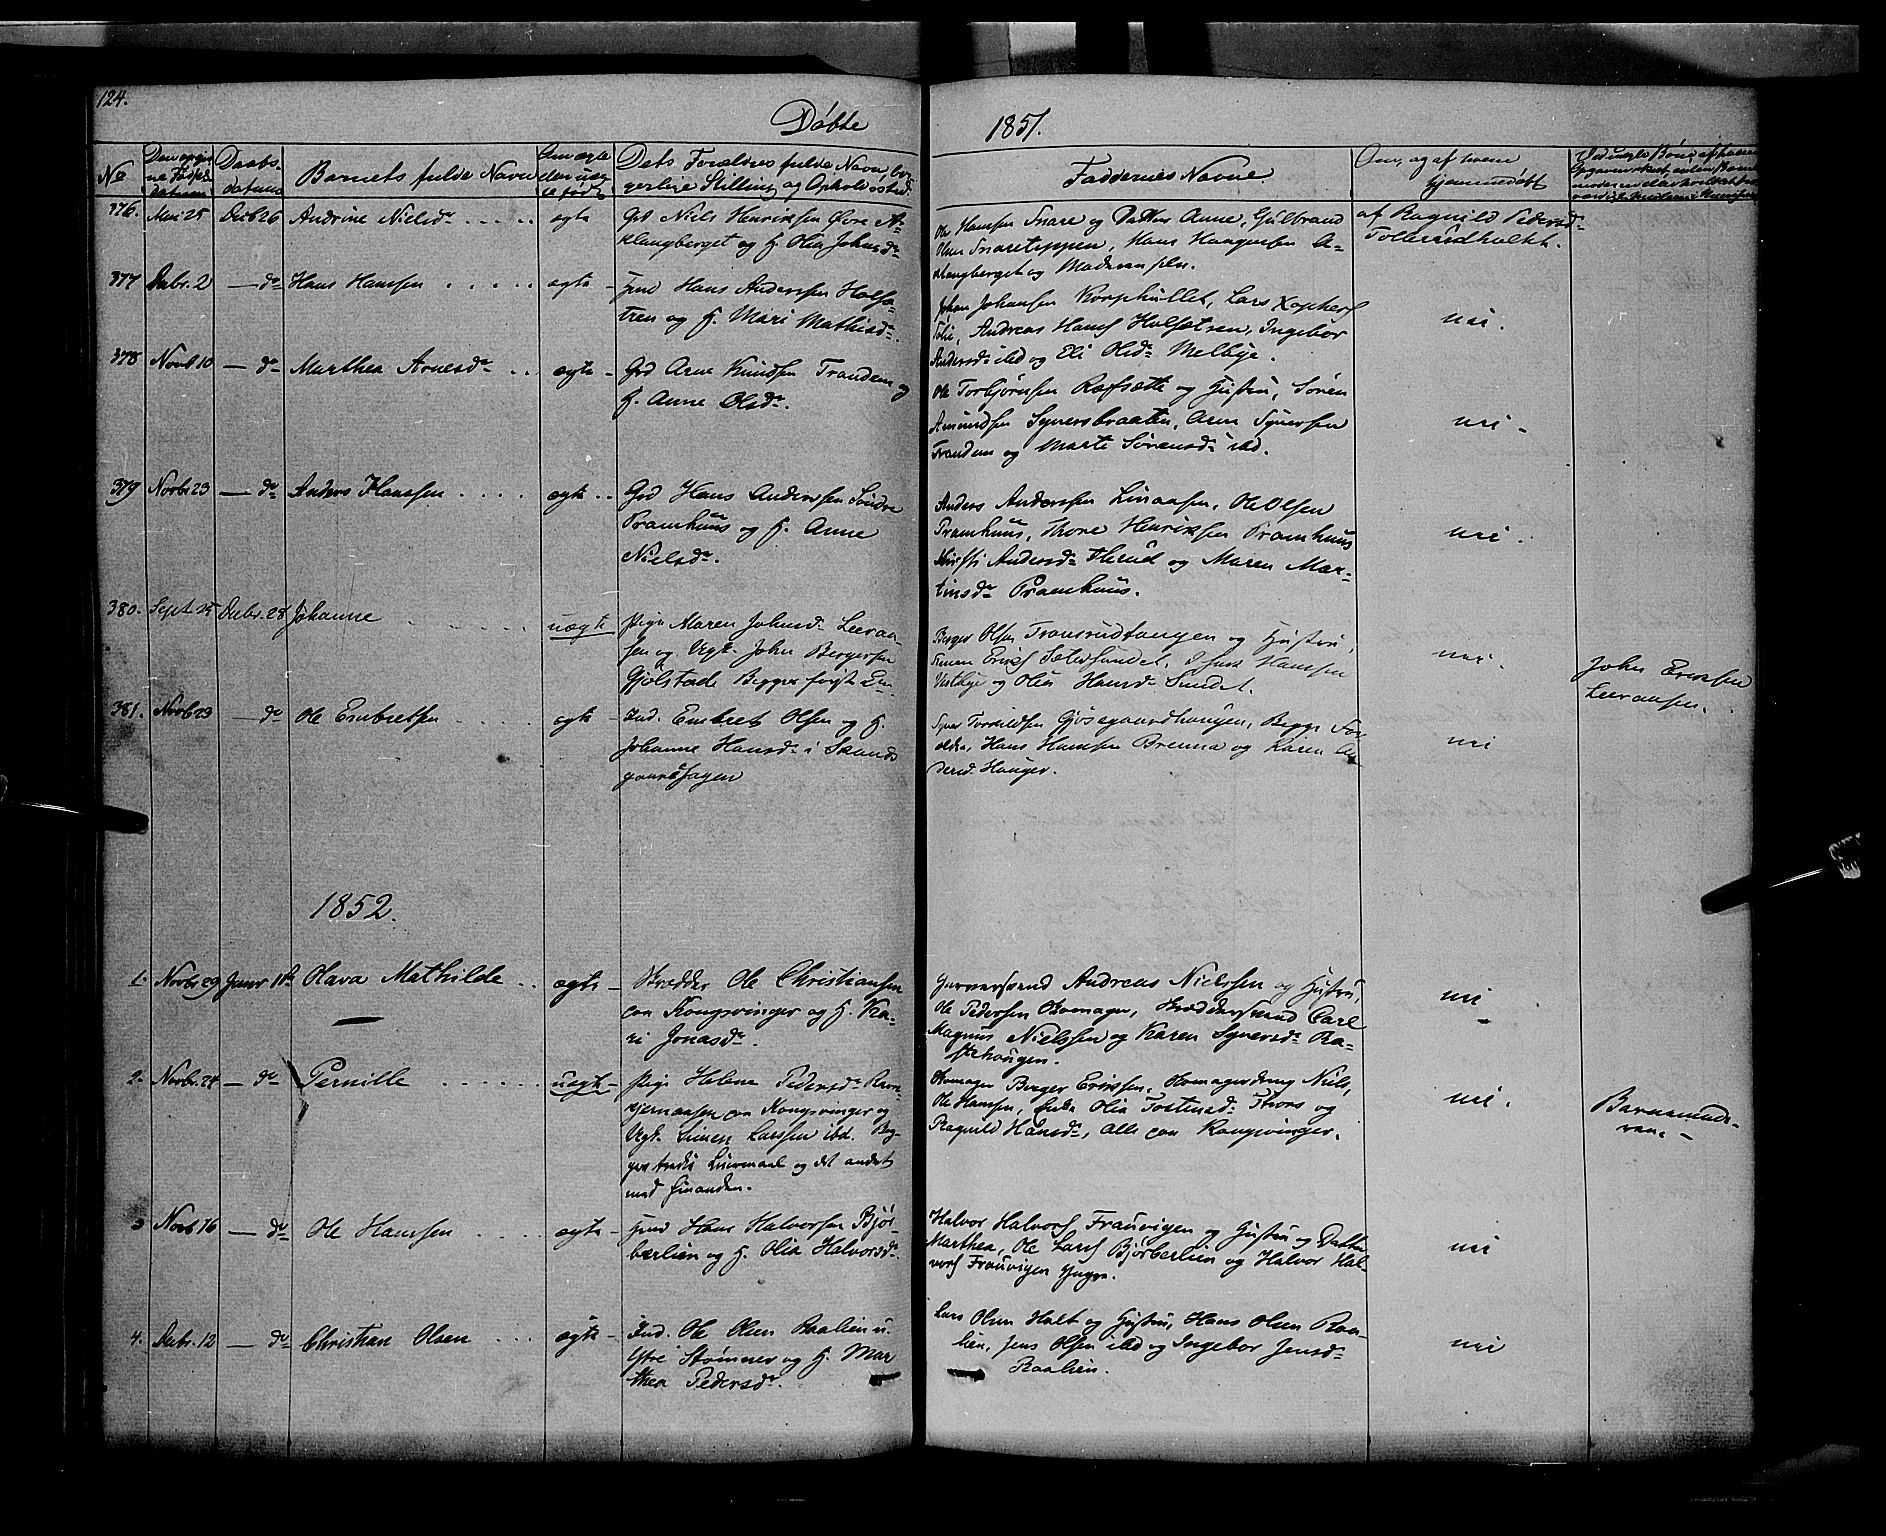 124.
Døbte
1851.
No
Daabs-
datum
Barnets fulde Navn
Dets Forældres fulde Navn, bor-
gerlige Stilling og Opholdssted
Faddernes Navne.
Om, og af hvem
hjemmedøbt
376. Mai 25 Decb 26 Andrine Nielsdr ægte
Grd Niels Henriksen Øvre A-
klangberget og H. Olia Johnsdr
Ole Hansen Snare og Datter Anne, Gulbrand
Olsen Snareteppen, Hans Haagensen A-
klangberget og Madersen
af Ragnild Pedersd-
377 Decbr. 2 — do Hans Hansen ægte
Hans Andersen Holsæ-
tren og H. Mari Mathisdr.
Johan Johansen Korphullet, Lars Xophers
Andreas Hansf Holsætren, Ingebor
Andersdr ibd og Eli Olsdr Melbye.
nei.
378 Novb 10 — do Marthea Arnesdr ægte
Grd Arne Knudsen Frandem og
H. Anne Olsdr.
Ole Torbjørnsen Ræfsætte og Hustru, Søren
Amundsen Syversbraaten, Arne Syversen
Frandem og Marte Sørensdr ibd.
nei.
379 Novbr 23 — do Anders Hansen ægte
Grd Hans Andersen Søndre
Pramhuus og H. Anne
Nielsdr.
Anders Andersen Linaasen, Ole Olsen
Pramhuus, Thore Henriksen Pramhuus
Andersdr Herud og Maren Mar-
tinsdr Pramhuus.
nei.
380. Sept 25 Decbr. 28 Johanne uægte
Pige Maren Johnsdr Leeraa-
sen og Ungk. John Bergersen
Gjølstade Begges første
Berger Olsen Fransrudtangen og Hustru,
Simen Ericsf Sætersundet, Hansen
Vestbye og Olia Hansdr Sundet.
nei.
John Ericksen
Leeraasen.
381. Novb 23 — do Ole Embretsen ægte
Ind. Embret Olsen og H.
Johanne Hansdr i Skands-
gaardshagen
Syver Torkildsen Gjøsegaardhaugen, Begge For-
ældre, Hans Hansen Brenna og Karen An-
dersd. Hauger.
nei
1852.
1. Novbr 29 Januar 1ste Olava Mathilde ægte
Skrædder Ole Christiansen
paa Kongsvinger og H. Ka-
ri Jonasdr.
Garversvend Andreas Nielsen og Hustru,
Ole Pedersen Skomager, Skræddersvend Carl
Magnus Nielssen og Karen Syversdr Ra-
stahaugen.
nei
2. Novbr. 24 — do Pernille uægte
Pige Helene Pedersdr
paa Kongsvinger og
Ungk. Simen Larssen ibd. Beg-
ges tredie Leiermaal og det andet
med hinanden.
Skomager Berger Erikssen, Skomagerdreng Niels,
Ole Hansen, Enke Olia Tostensdr Thors og
Ragnild Hansdr, alle paa Kongsvinger.
nei.
Barnemode-
ren.
3 Novb 16 — do Ole Hanssen ægte
Hans Halvorsen Bjør-
berlien og H. Olia Halvorsdr
Halvor Halvorsf Frauvigen og Hustru og Datter
Marthea, Ole Larsf Bjørberlien og Halvor Hal-
vorsf Frauvigen Yngre.
nei
4. Decbr. 12 — do Christian Olsen ægte
Ind. Ole Olsen Raalien u.
Ytre Stømner og H. Mar-
thea Pedersdr.
Lars Olsen Holt og Hustru, Hans Olsen Raa-
lien, Jens Olsen ibd og Ingebor Jensdr
Raalien.
nei